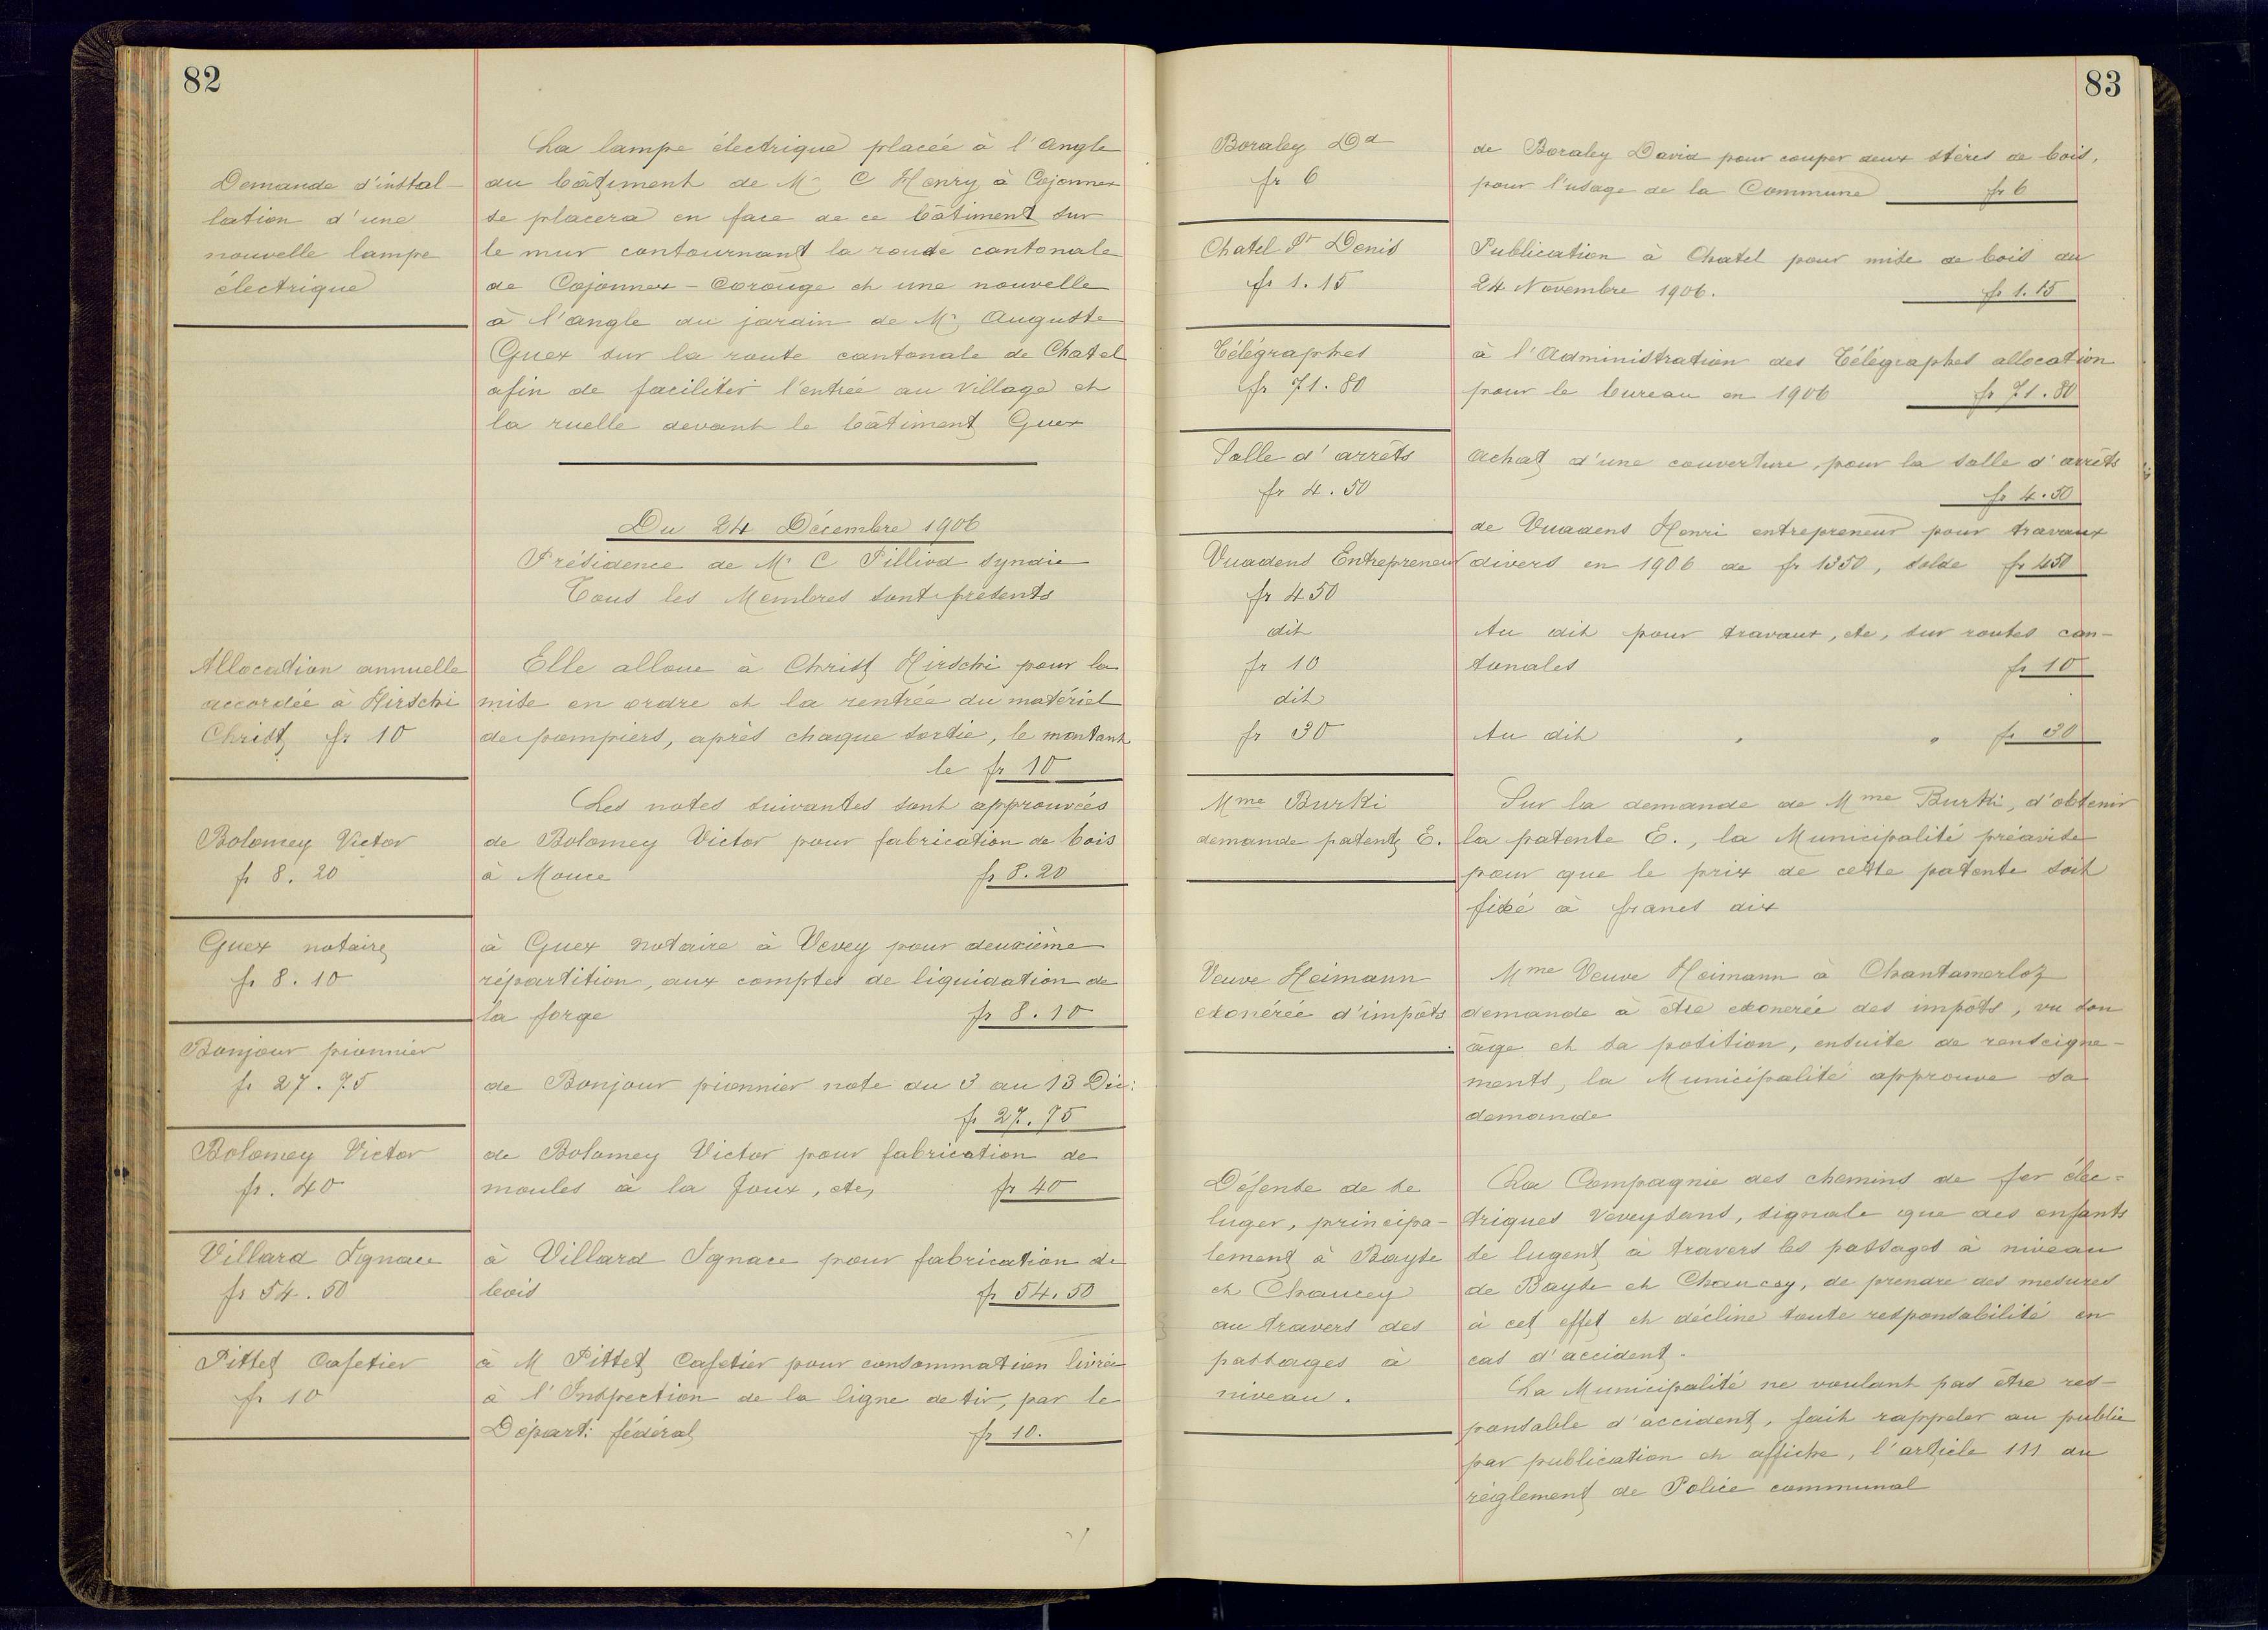 82
Demande d'instal-
lation d'une
nouvelle lampe
électrique
La lampe électrique placée à l'Angle
du bâtiment de Mr C Henry à Cojonnex
se placera en face de ce bâtiment sur
le mur contournant la route cantonale
de Cojonnex - Corouge et une nouvelle
à l'angle du jardin de Mr Auguste
Guex sur la route cantonale de Chatel
afin de faciliter l'entrée au Village et
la ruelle devant le bâtiment Guex
Du 24 Décembre 1906
Présidence de Mr C Pilliod Syndic
Tous les Membres sont présents
Allocation annuelle
accordée à Hirschi
Christ, fr 10
Elle alloue à Christ Hirschi pour la
mise en ordre et la rentrée du matériel
de pompiers, après chaque sortie, le montant
le fr 10
Les notes suivantes sont approuvées
Bolomey Victor
fr 8. 20
de Bolomey Victor pour fabrication de bois
à Mouce
fr 8.20
Guex notaire
fr 8. 10
à Guex notaire à Vevey pour deuxième
répartition, aux comptes de liquidation de
la forge
fr 8. 10
Bonjour pionnier
fr 27. 75
de Bonjour pionnier note du 3 au 13 Déc:
fr 27. 75
Bolomey Victor
fr. 40
de Bolomey Victor pour fabrication de
moules à la Joux, etc,
fr 40
Villard Ignace
fr 54. 50
à Villard Ignace pour fabrication de
bois
fr 54. 50
Pittet Cafetier
fr 10
à M Pittet Cafetier pour consommation livrée
à l'Inspection de la ligne de tir, par le
Départ: fédéral
fr 10.
83
Boraley Dd
fr 6
de Boraley David pour couper deux stères de bois,
pour l'usage de la Commune
fr 6
Chatel St Denis
fr 1. 15
Publication à Chatel pour mise de bois du
24 Novembre 1906.
fr 1. 15
Télégraphes
fr 71. 80
à l'Administration des Télégraphes allocation
pour le bureau en 1906
fr 71. 80
Salle d'arrêts
fr 4. 50
Achat d'une couverture, pour la salle d'arrêts
fr 4. 50
Vuadens Entrepreneur
fr 450
de Vuadens Henri entrepreneur pour travaux
divers en 1906 de fr 1350, solde fr 450
dit
fr 10
Au dit pour travaux, etc, sur routes can-
tonales
fr 10
dit
fr 30
Au dit " " fr 30
Mme Burki
demande patente E.
Sur la demande de Mme Burki, d'obtenir
la patente E., la Municipalité préavise
pour que le prix de cette patente soit
fixé à francs dix
Veuve Heimann
exonérée d'impôts
Mme Veuve Heimann à Chantamerloz
demande à être exonerée des impôts, vu son
âge et sa position, ensuite de renseigne-
ments, la Municipalité approuve sa
demande
Défense de se
luger, principa-
lement à Bayse
et Chaucey
au travers des
passages à
niveau.
La Compagnie des chemins de fer élec-
triques Veveysans, signale que des enfants
se lugent à travers les passages à niveau
de Bayse et Chaucey, de prendre des mesures
à cet effet et décline toute responsabilité en
cas d'accident.
La Municipalité ne voulant pas être res-
ponsable d'accident, fait rappeler au public
par publication et affiche, l'article 111 du
règlement de Police communal